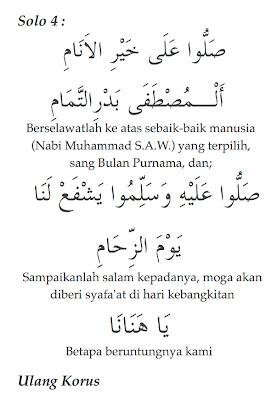 Solo 4 :
صَلُّوا عَلَى خَيْرِ الأَنَامِ
أَلْـــمُصْطَفَى بَدْرِالتَّمَامِ
Berselawatlah ke atas sebaik-baik manusia
(Nabi Muhammad S.A.W.) yang terpilih,
sang Bulan Purnama, dan;
صَلُّوا عَلَيْهِ وَسَلِّمُوا يَشْفَعْ لَنَا
يَوْمَ الزِّحَامِ
Sampaikanlah salam kepadanya, moga akan
diberi syafa'at di hari kebangkitan
يَا هَنَانَا
Betapa beruntungnya kami
Ulang Korus